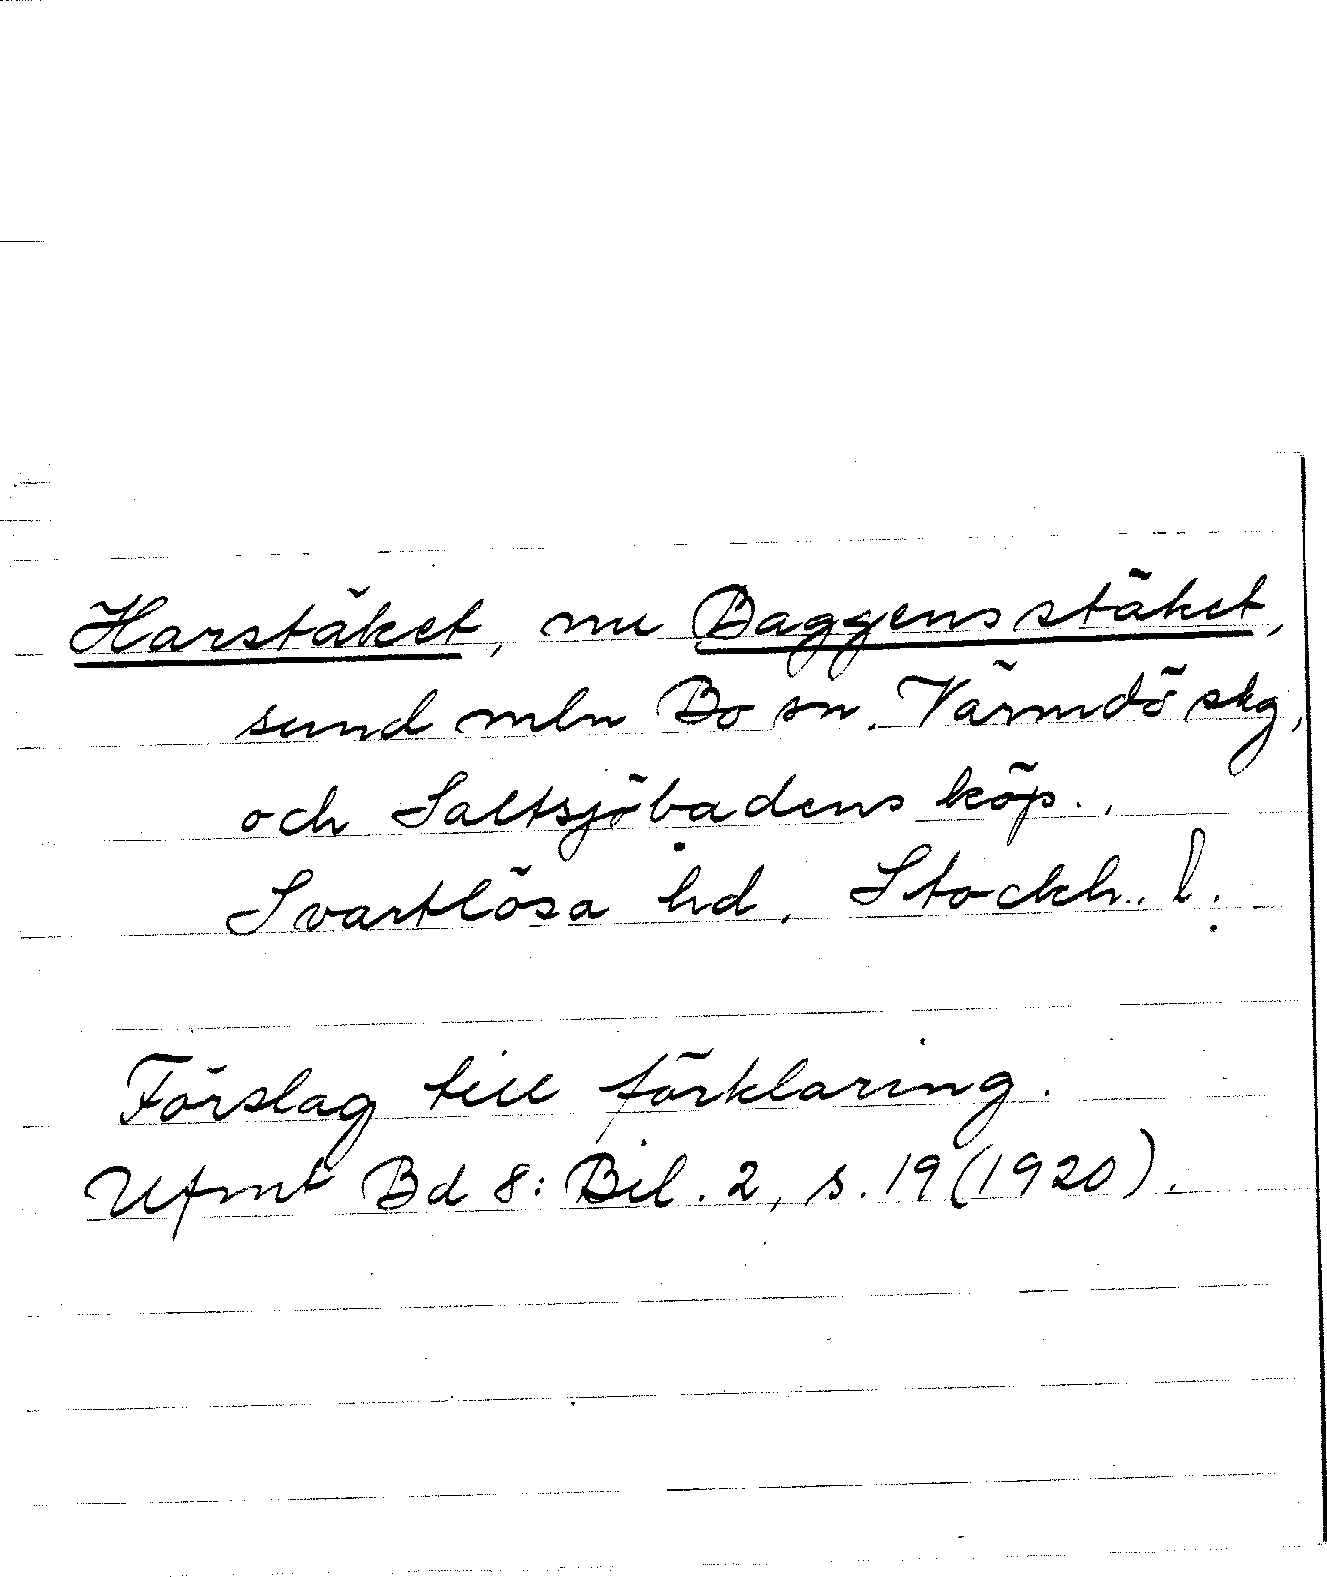 Harstäket, nu Baggensstäket,
sund mln Bo sn, Värmdö skg,
och Saltsjöbadens köp.,
Svartlösa hd, Stockh. l.
Förslag till förklaring.
Ufmt Bd 8: Bil. 2, s. 19 (1920).